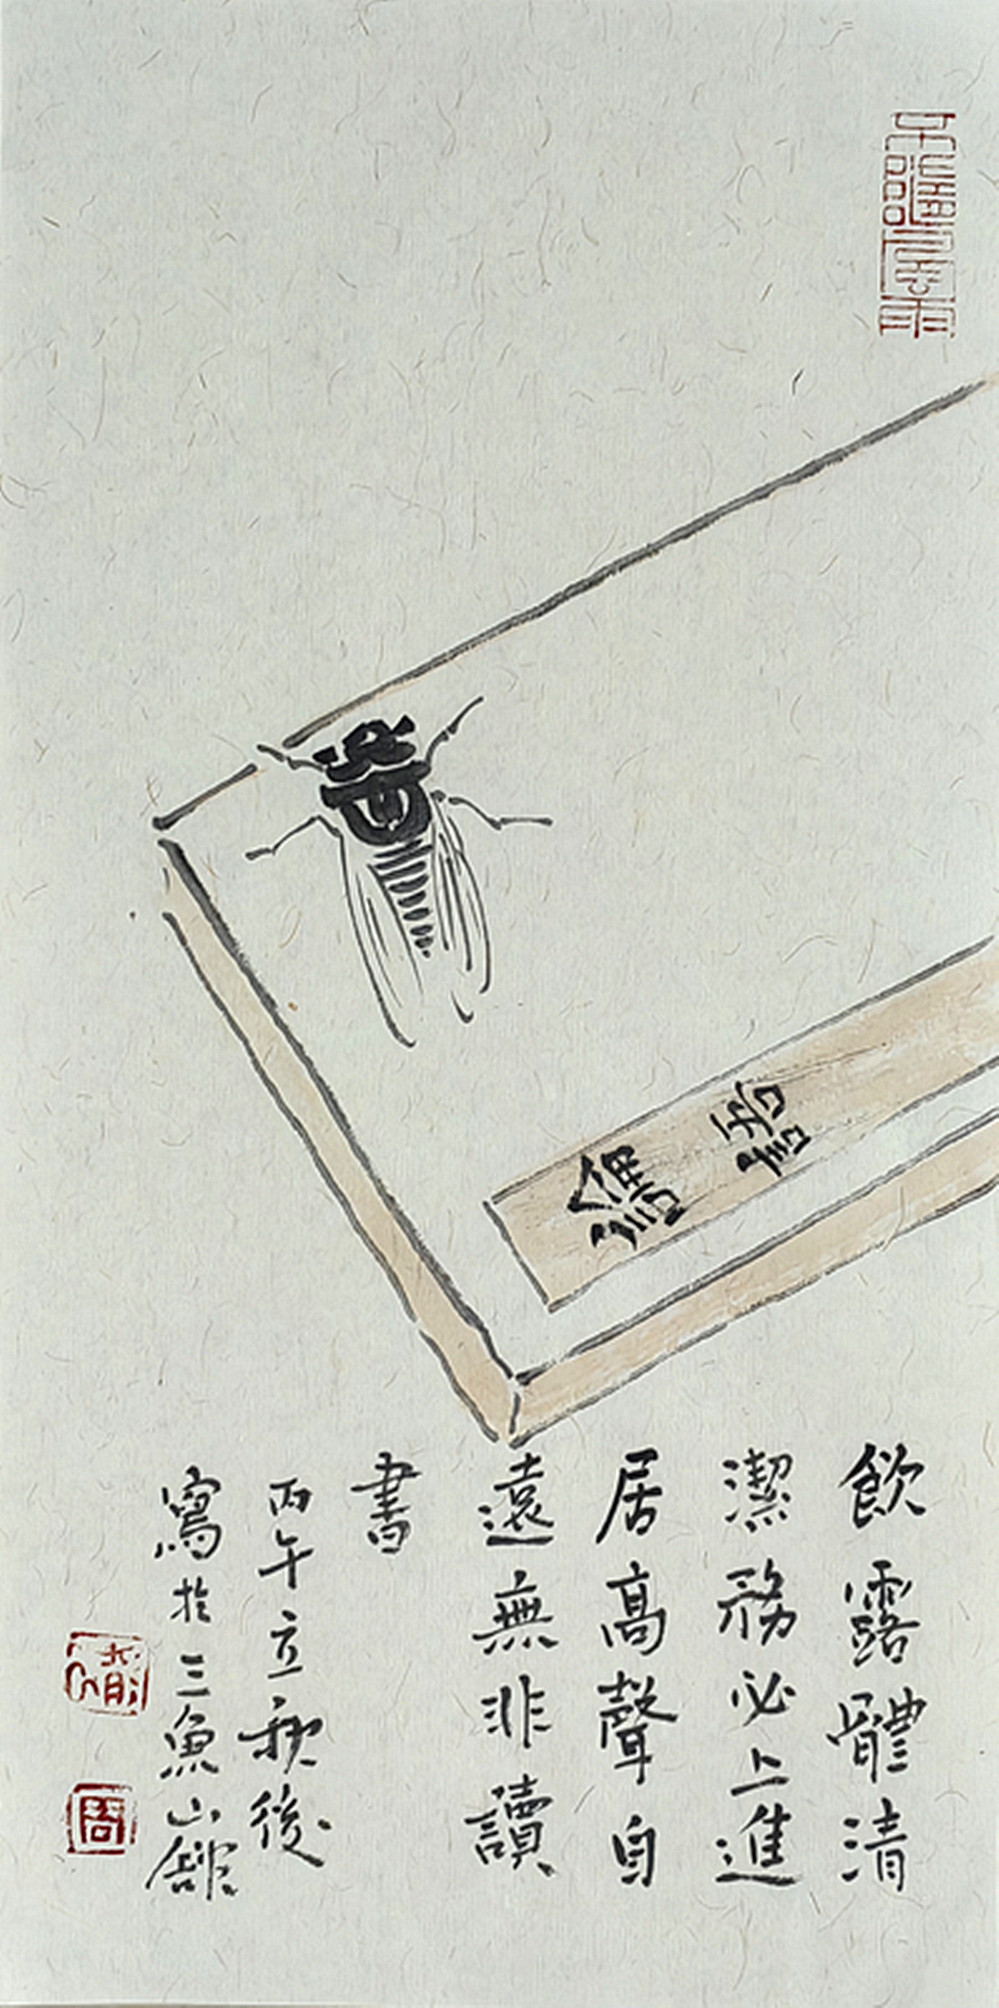 論語
飲露體清
潔務必上進
居高聲自
遠無非讀
書
丙午立秋後
寫於三魚山館
周